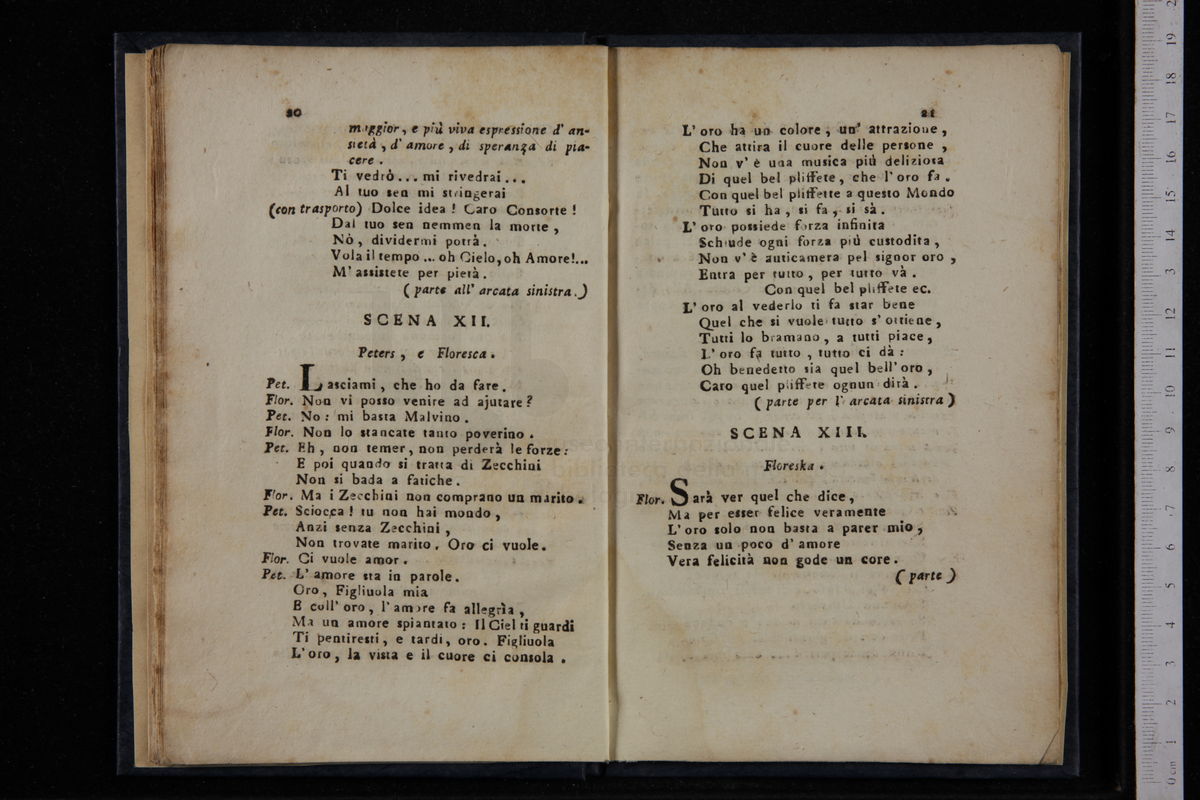 20
maggior, e più viva espressione d' an-
sietà, d' amore, di speranza di pia-
cere.
Ti vedrò... mi rivedrai...
Al tuo sen mi stringerai
(con trasporto) Dolce idea! Caro Consorte!
Dal tuo sen nemmen la morte,
Nò, dividermi potrà.
Vola il tempo... oh Cielo, oh Amore!...
M' assistete per pietà.
(parte all' arcata sinistra.)
SCENA XII.
Peters, e Floresca.
Pet. Lasciami, che ho da fare.
Flor. Non vi posso venire ad ajutare?
Pet. No: mi basta Malvino.
Flor. Non lo stancate tanto poverino.
Pet. Eh, non temer, non perderà le forze:
E poi quando si tratta di Zecchini
Non si bada a fatiche.
Flor. Ma i Zecchini non comprano un marito.
Pet. Sciocca! tu non hai mondo,
Anzi senza Zecchini,
Non trovate marito. Oro ci vuole.
Flor. Ci vuole amor.
Pet. L' amore sta in parole.
Oro, Figliuola mia
E coll' oro, l' amore fa allegrìa,
Ma un amore spiantato: Il Ciel ti guardi
Ti pentiresti, e tardi, oro. Figliuola
L' oro, la vista e il cuore ci consola.
21
L' oro ha un colore, un' attrazione,
Che attira il cuore delle persone,
Non v' è una musica più deliziosa
Di quel bel pliffete, che l' oro fa.
Con quel bel pliffette a questo Mondo
Tutto si ha, si fa, si sà.
L' oro possiede forza infinita
Schiude ogni forza più custodita,
Non v' è anticamera pel signor oro,
Entra per tutto, per tutto và.
Con quel bel pliffete ec.
L' oro al vederlo ti fa star bene
Quel che si vuole tutto s' ottiene,
Tutti lo bramano, a tutti piace,
L' oro fa tutto, tutto ci dà:
Oh benedetto sia quel bell' oro,
Caro quel pliffete ognun dirà.
(parte per l' arcata sinistra)
SCENA XIII.
Floreska.
Flor. Sarà ver quel che dice,
Ma per esser felice veramente
L' oro solo non basta a parer mio,
Senza un poco d' amore
Vera felicità non gode un core.
(parte)
0 cm 1 2 3 4 5 6 7 8 9 10 11 12 13 14 15 16 17 18 19